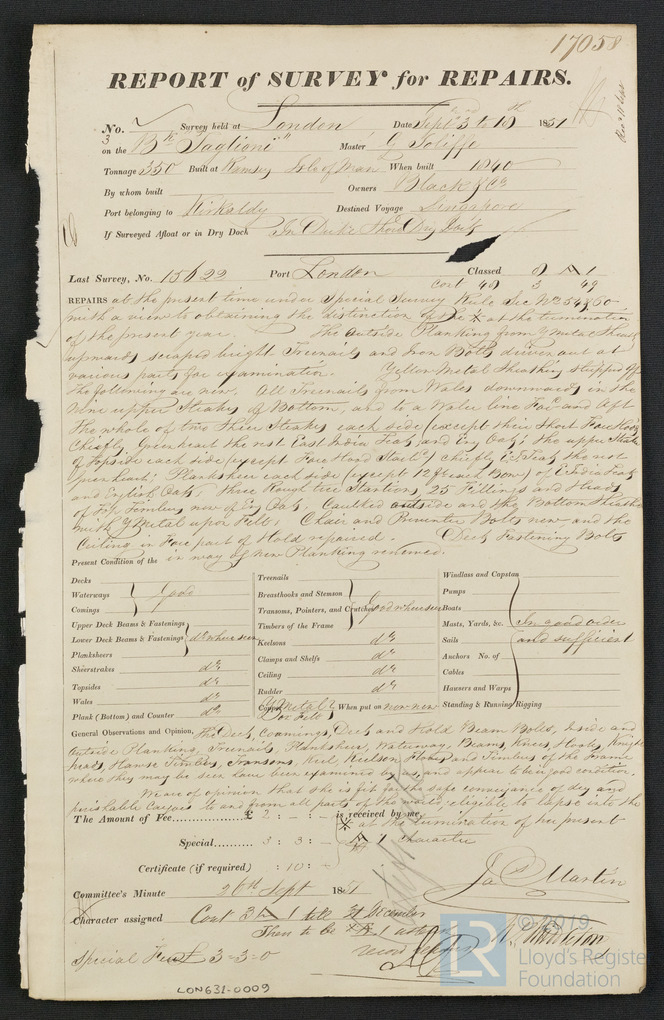 17058
REPORT of SURVEY for REPAIRS.
No. Survey held at London Date Sept 3rd to 18th 1851
on the Bk "Taglioni" Master G Joliffe
Tonnage 350 Built at Ramsey Isle of Man When built 1840
By whom built Owners Black & Co
Port belonging to Kirkaldy Destined Voyage Singapore
If Surveyed Afloat or in Dry Dock In Duke Shore Dry Dock
Last Survey, No. 15622 Port London Classed A 1
REPAIRS at the present time under Special Survey Rule Sec Nos 54 & 60
with a view to obtaining the distinction of the at the termination
of the present year. The outside Planking from Y Metal Sheathg
upwards scraped bright Treenails and Iron Bolts driven out at
various parts for examination. Yellow Metal Sheathing stripped off
The following are new. All Treenails from Wales downwards in the
nine upper Strakes of Bottom, and to a Water line Fore and Aft
the whole of two thick Strakes each side (except their short Fore Hoods
Chiefly Greenheart the rest East India Teak and Eng Oak; the upper Strake
of Topside each side (except Fore Hood Starbd) chiefly E I Teak the rest
Greenheart; Planksheer each side (except 12 feet at Bow) of E India Teak
and English Oak; three Rough tree Stantions, 25 Fillings and Heads
of Top Timbers now of Eng Oak. Caulked outside and the Bottom Sheathed
with Y Metal upon Felt; Chain and Preventer Bolts new and the
Ceiling in Fore part of Hold repaired. Deck Fastening Bolts
in way of new Planking renewed.
Present Condition of the
Decks
Waterways Good
Comings
Upper Deck Beams & Fastenings
Lower Deck Beams & Fastenings do where seen
Planksheers
Sheerstrakes do
Topsides do
Wales do
Plank (Bottom) and Counter do
Treenails
Breasthooks and Stemson
Transoms, Pointers, and Crutches Good where seen
Timbers of the Frame
Keelsons do
Clamps and Shelfs do
Ceiling do
Rudder do
Copper Y Metal & on Felt When put on now new
Windlass and Capstan
Pumps
Boats
Masts, Yards, &c. In good order
Sails and sufficient
Anchors No. of
Cables
Hawsers and Warps
Standing & Running Rigging
General Observations and Opinion, The Deck, Coamings, Deck and Hold Beam Bolts, Inside and
Outside Planking, Treenails, Planksheer, Waterway, Beams, Knees, Hooks, Knight
heads, Hawse Timbers, Transoms, Keel, Keelson, Floors and Timbers of the Frame
where they may be seen have been examined by us, and appear to be in good condition.
We are of opinion that she is fit for the safe conveyance of dry and
perishable Cargoes to and from all parts of the world, eligible to lapse into the
The Amount of Fee £ 2 : - : - is received by me,
at the termination of her present
Special 3 : 3 : - A 1 character
Certificate (if required) : 10 : -
Jas Martin
Committee's Minute 26th Sept 1851
Character assigned Cont A 1 till 31 December
Then to be A 1
Special Fee £ 3-3-0
LON631-0009
LR © 2019
Lloyd's Register
Foundation